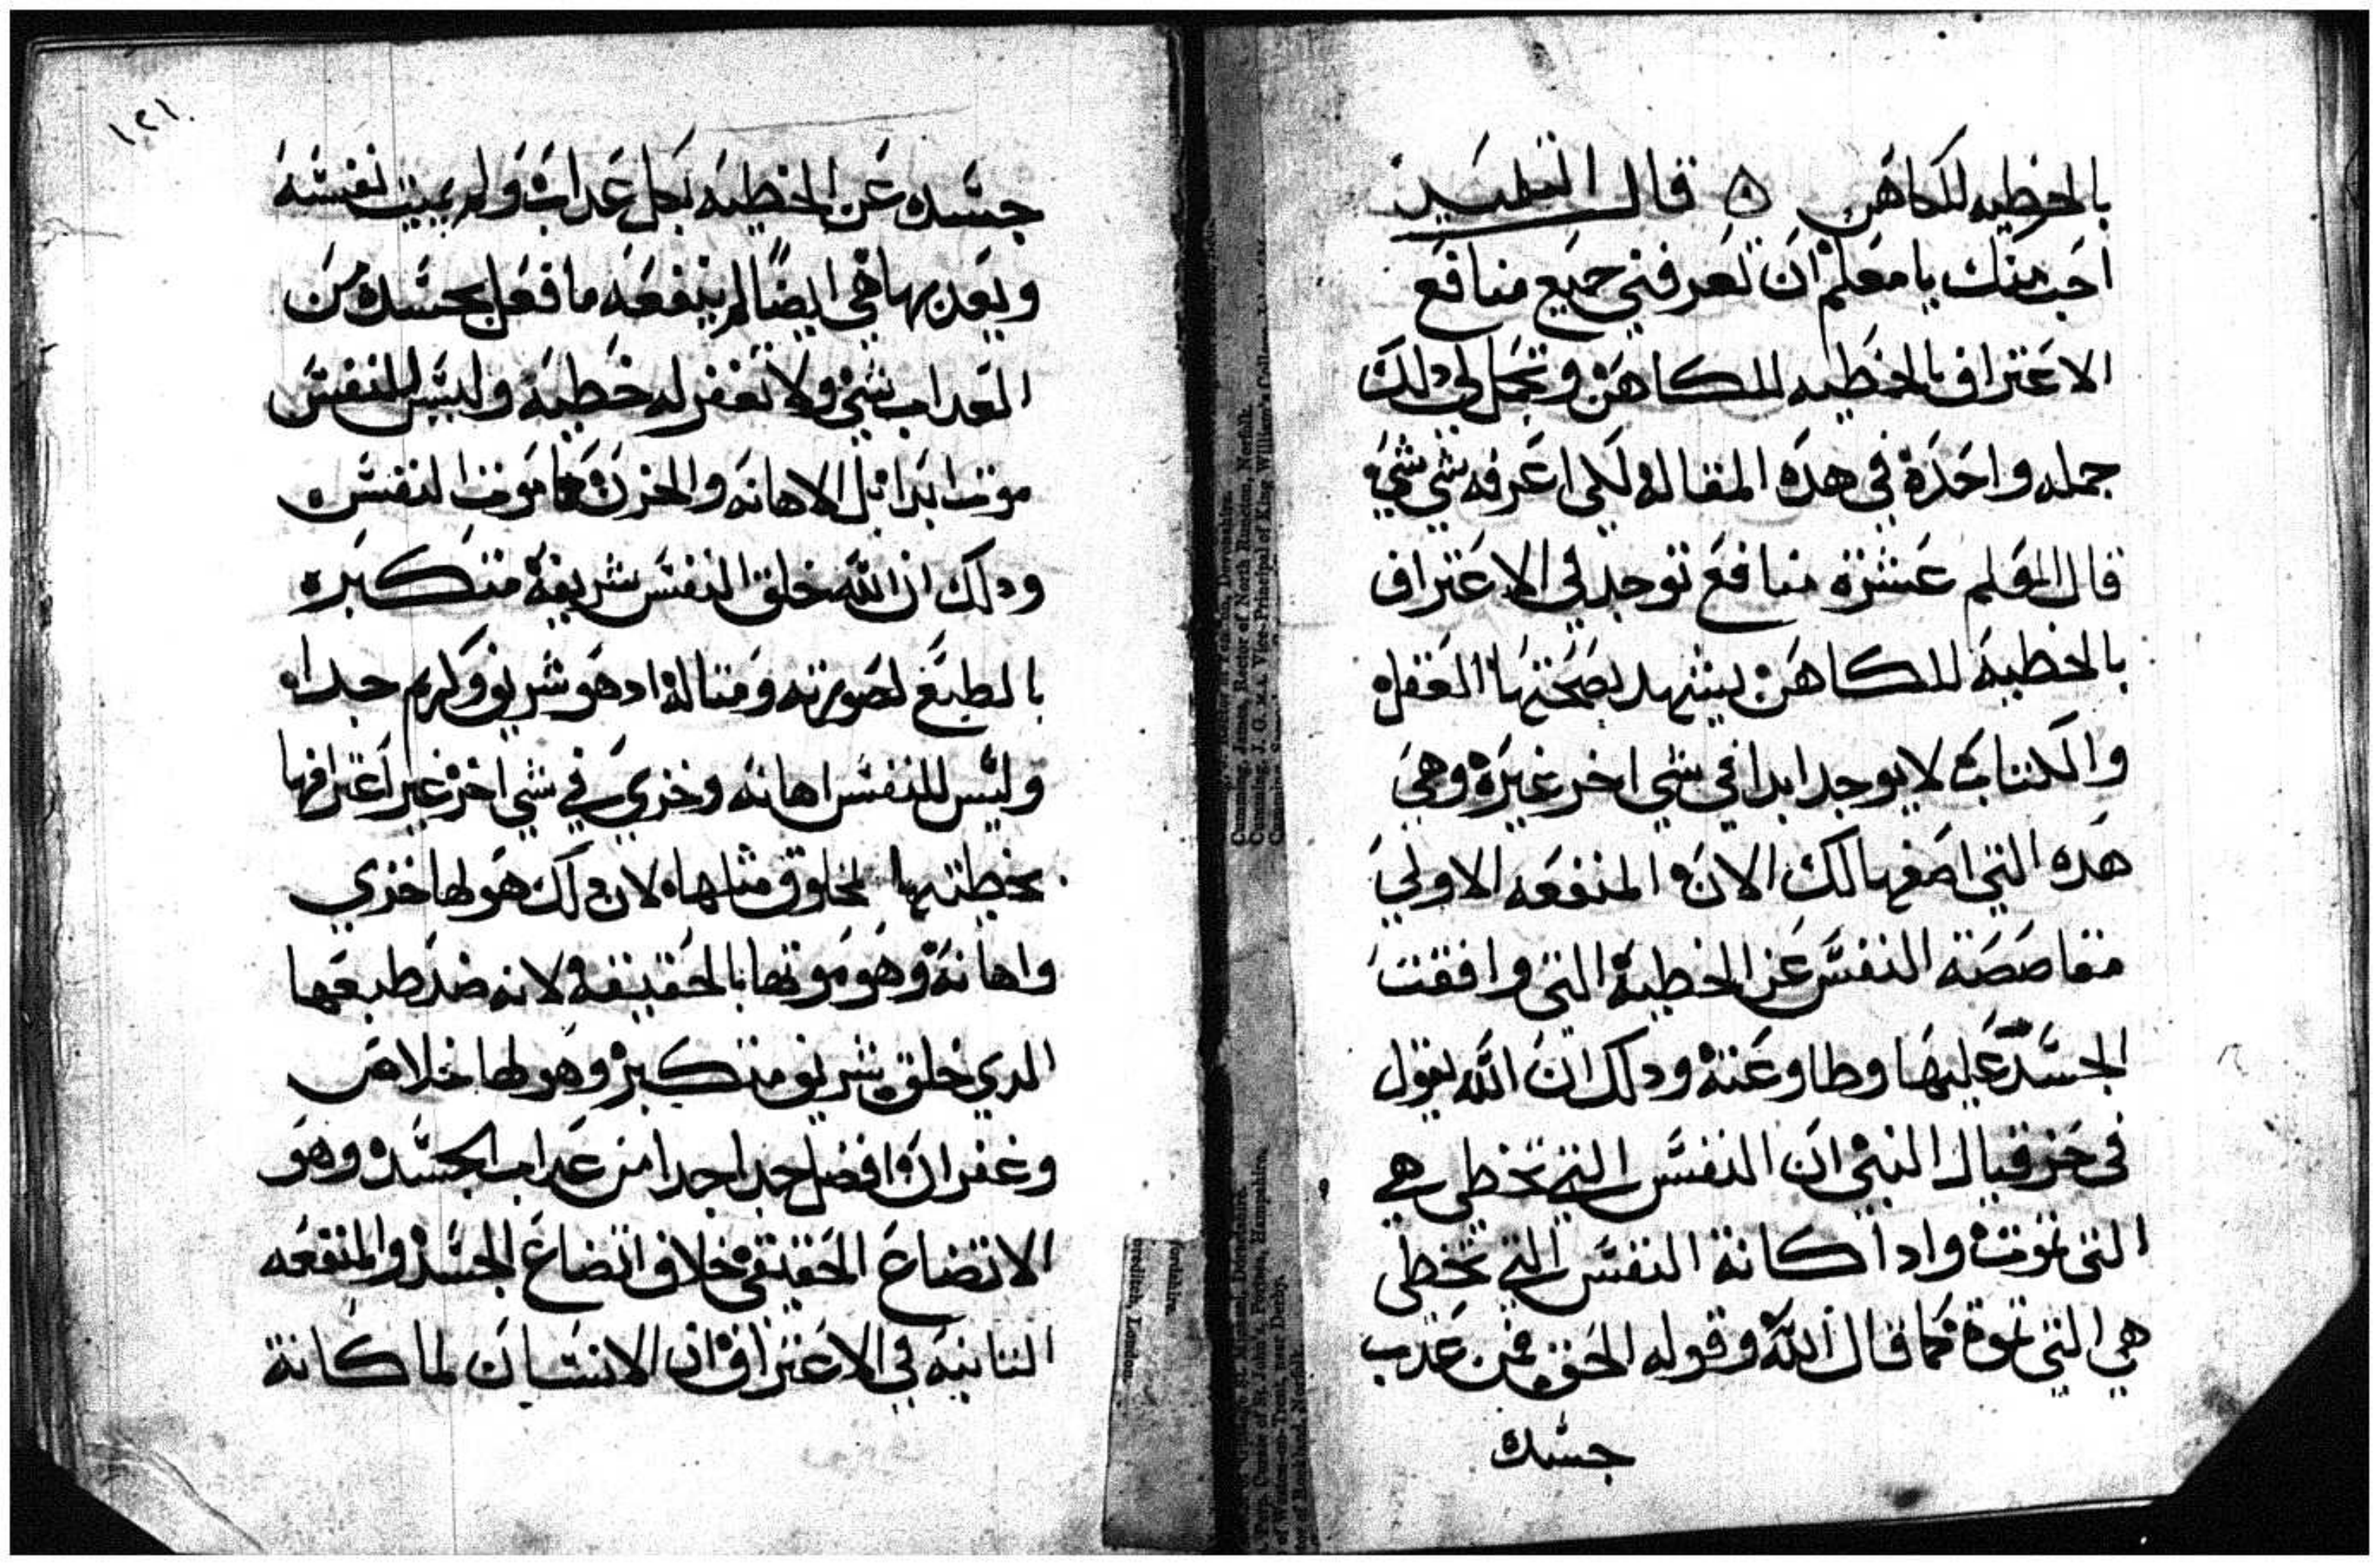 بالخطيه للكاهن ٥ قال التلميد
احب منك يا معلم ان تعرفني جميع منافع
الاعتراف بالخطيه للكاهن وتجمل لي دلك
جمله واحدة في هده المقالة لكي اعرفه شي شي
قال المعلم عشرة منافع توجد في الاعتراف
بالخطية للكاهن يشهد بصحتها العقل
والكتاب لا يوجد ابدا في شي اخر غيره وهي
هده التي اصفها لك الان المنفعه الاولي
مقاصصة النفس عن الخطية التي وافقت
الجسد عليها وطاوعته ودلك ان الله يقول
في حزقيال النبي ان النفس التي تخطي هي
التي تموت وادا كانة النفس التي تخطي
هي التي تموة كما قال الله وقوله الحق فمن عدب
جسده
١٢١
جسده عن الخطيه بكل عداب ولم يميت نفسه
ويعدبها هي ايضا لم ينفعه ما فعل بجسده من
العداب شي ولا تغفر له خطيه وليس للنفس
موت ابدا بل الاهانه والحزن هما موت النفس
ودلك ان الله خلق النفس شريفة متكبره
بالطبع لصورته ومتاله اد هو شريف وكريم جدا
وليس للنفس اهانه وخزي في شي اخر غير اعترافها
بخطيتها لمخلوق مثلها لان دلك هو لها خزي
واهانة وهو موتها بالحقيقه لانه ضد طبعها
الدي خلق شريف متكبر وهو لها خلاص
وغفران افضل جدا جدا من عداب الجسد وهو
الاتضاع الحقيقي خلاف اتضاع الجسد والمنفعه
التانيه في الاعتراف ان الانسان لما كانة